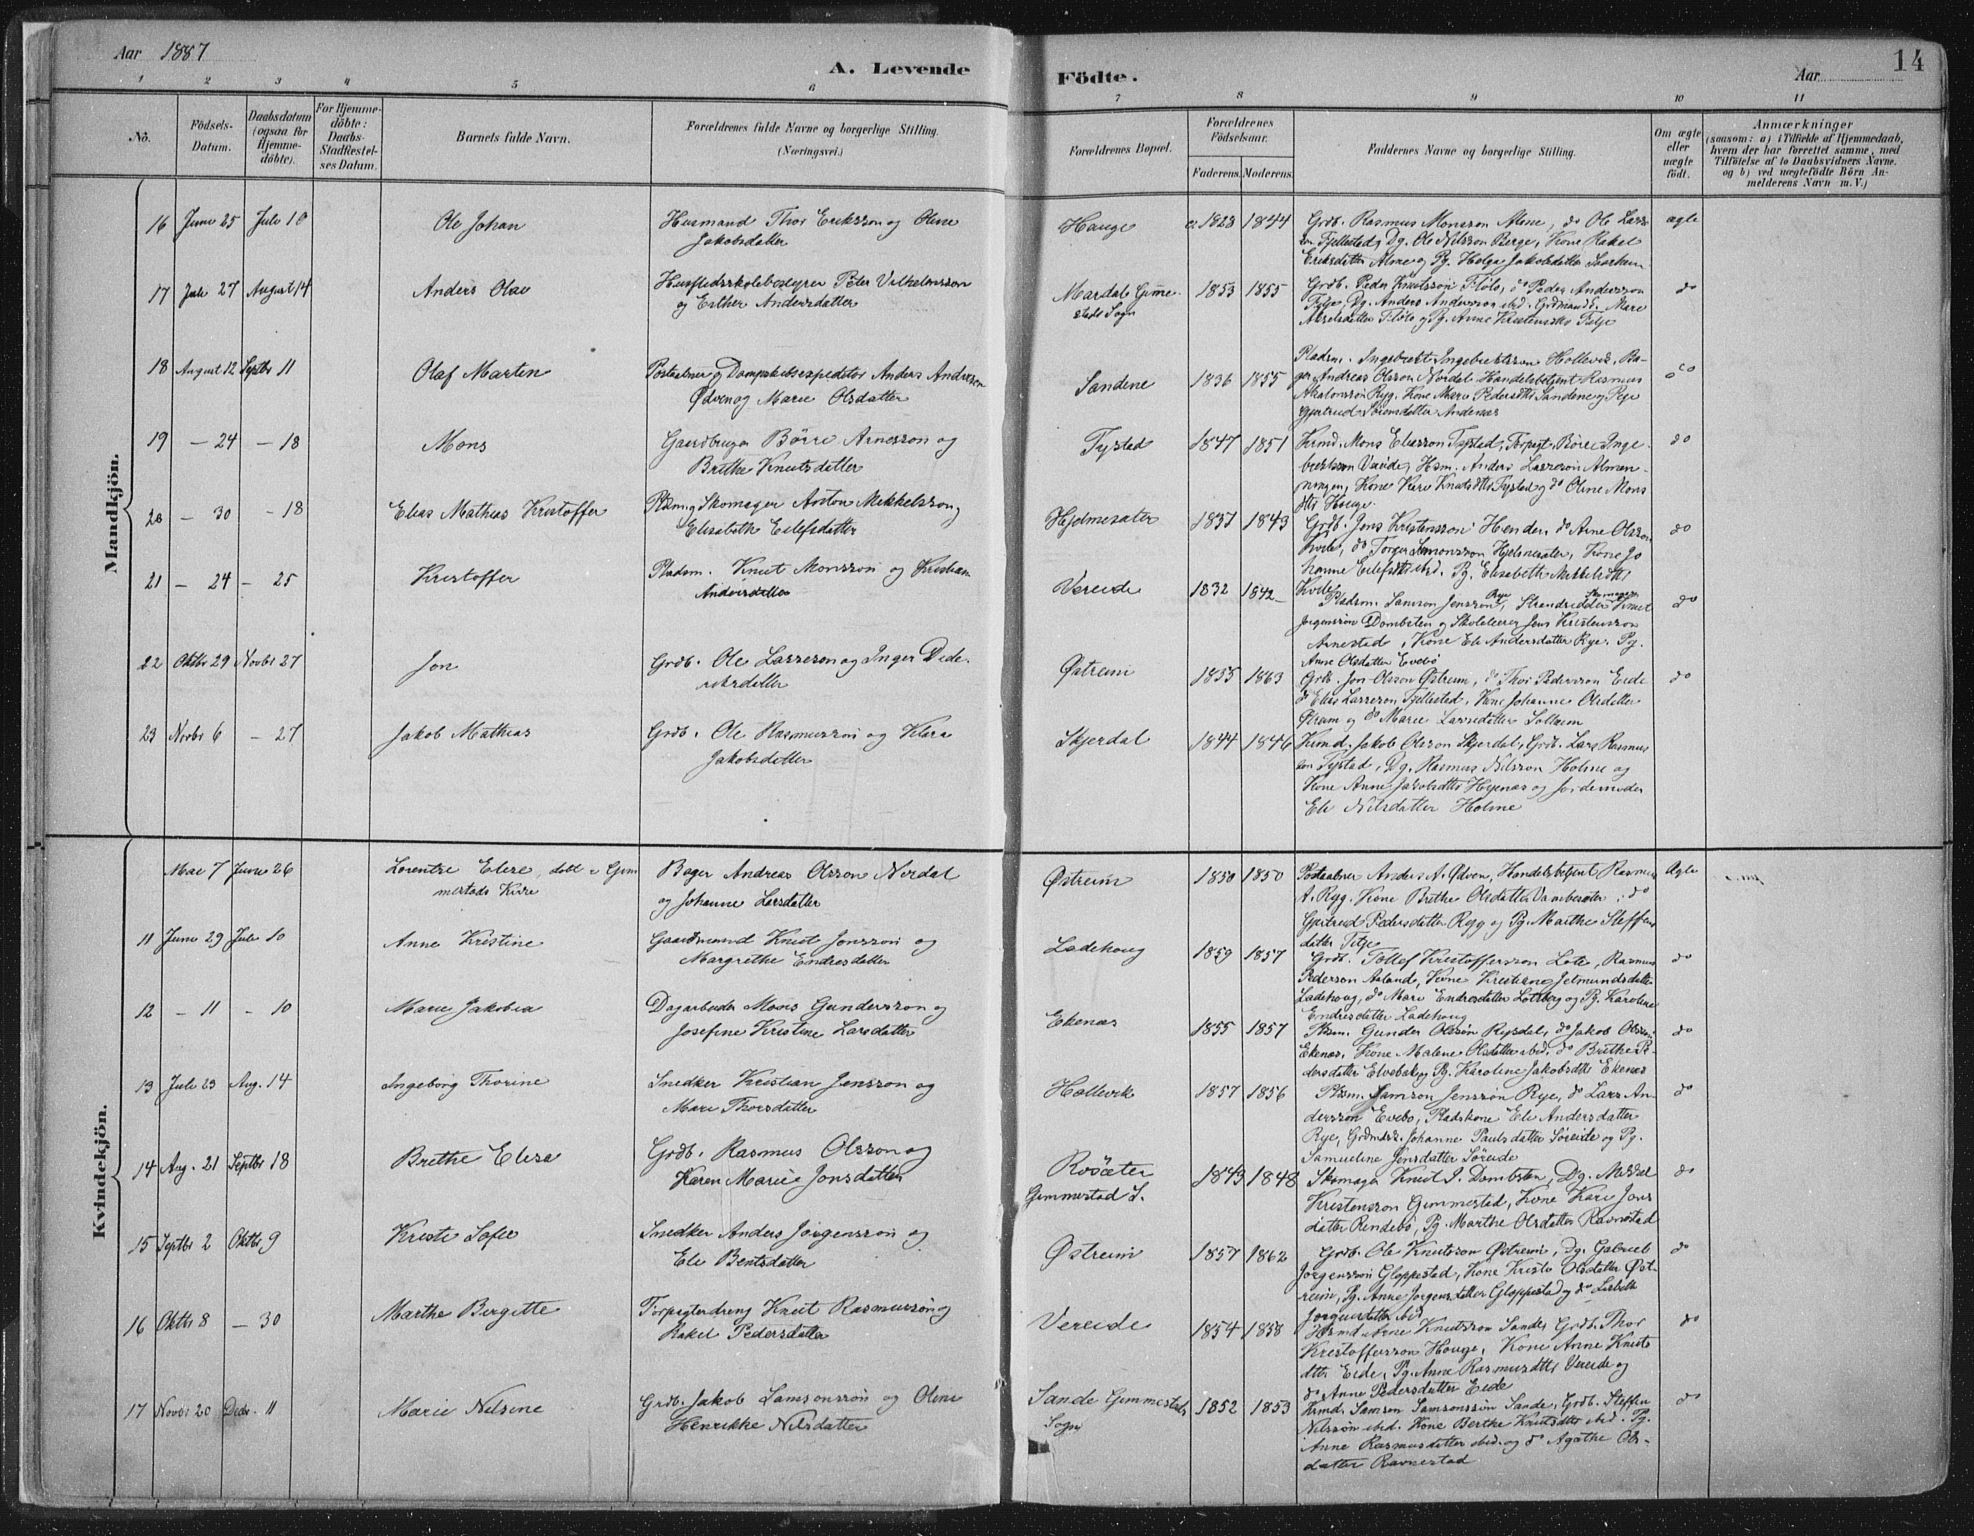 Aar 1887
A. Levende
Födte.
Aar
14
1 2 3 4 5 6 7 8 9 10 11
No.
Födsels-
Datum.
Daabsdatum
(ogsaa for
Hjemme-
döbte).
For Hjemme-
döbte:
Daabs-
Stadfæstel-
ses Datum.
Barnets fulde Navn.
Forældrenes fulde Navne og borgerlige Stilling.
(Næringsvei.)
Forældrenes Bopæl.
Forældrenes
Födselsaar.
Faderens. Moderens.
Faddernes Navne og borgerlige Stilling.
Om ægte
eller
uægte
födt.
Anmærkninger
(saasom: a) i Tilfælde af Hjemmedaab,
hvem der har forrettet samme, med
Tilföielse af to Daabsvidners Navne.
og b) ved uægtefödte Börn An-
melderens Navn m. V.)
Mandkjön.
16 Juni 25 Juli 10 Ole Johan
Husmand Thor Eriksson og Oline
Jakobsdatter
Hauge 1828 1844
Grdb. Rasmus Monsson Alme, do Ole Lars-
son Fjellestad, Dg. Ole Nilsson Berge, Kone Rakel
Eriksdatter Alme og Pg. Helga Jakobsdatter
ægte
17 Juli 27 August 14 Anders Olav
Husflidsskolebestyrer Peter Vilhelmsson
og Esther Andersdatter
Mardal Gimme-
stads Sogn
1853 1855
Grdb. Peder Knutsson Flölo, do Peder Andersson
Fitje, Dg. Anders Andersson ibid. Grdmandsk. Mari
Akselsdatter Flölo og Pg. Anne Kristensdtr Fitje
do
18 August 12 Septbr 11 Olaf Martin
Postaabner og Dampskibsexpeditör Anders Andersson
Ödven og Marie Olsdatter
Sandene 1836 1855
Pladsm. Ingebrikt Ingebriktsson Hollevik, Ba-
ger Andreas Olsson Nordal Handelsbetjent Rasmus
Absalonsson Ryg. Kone Mari Pedersdtr Sandene og Pige
Gjertrud Sörensdatter Andenæs
do
19 — 24 — 18 Mons
Gaardbruger Börre Arnesson og
Brithe Knutsdatter
Tystad 1847 1851
Krmd. Mons Eliasson Tystad, Forpagt. Börre Inge-
briktsson Vereide, Hsm. Anders Larsson Almen-
ningen, Kone Kari Knutsdtr Tystad og do Oline Mons
dtr Hauge
do
20 — 30 — 18 Elias Mathias Kristoffer
Pldsm. og Skomager Anton Mikkelsson og
Elisabeth Eilefsdatter
Hjelmesæter 1837 1843
Grdb. Jens Kristensson Henden, do Arne Olsson
Hvile, do Torger Simonsson Hjelmesæter, Kone Jo
hanne Eilefsdtr ibid. Pg. Elisabeth Mikkelsdtr
do
21 — 24 — 25 Kristoffer
Pladsm. Knut Monsson og Kristian
Andersdatter
Vereide 1832 1842
Pladsm. Samson Jensson Rye, Strandsidder Knut
Jorgensson Dombsten og Skolelærer Jens Kristensson
Arnestad, Kone Eli Andersdatter Rye. Pg.
Anne Olsdatter Evebö
do
22 Oktbr 29 Novbr 27 Jon
Grdb. Ole Larsson og Inger Dide-
riksdatter
Östrem 1855 1863
Grdb. Jon Olsson Östrem, do Thor Pedersson Eide
do Elias Larsson Fjellestad, Kone Johanne Olsdatter
Östrem og do Marie Larsdatter Solheim
do
23 Novbr 6 — 27 Jakob Mathias
Grdb. Ole Rasmusson og Klara
Jakobsdatter
Skjerdal 1844 1846
Krmd. Jakob Olsson Skjerdal, Grdb. Lars Rasmus
son Tystad, Dg. Rasmus Nilsson Holme og
Kone Anne Jakobsdtr Hyenæs og Jordemoder
Eli Nilsdatter Holme
Kvindekjön.
Mai 7 Juni 26 Lorentze Elise, döbt i Gim
mestads Kirke
Bager Andreas Olsson Nordal
og Johanne Larsdatter
Östrem 1850 1850
Postaabner Anders A. Ödven, Handelsbetjent Rasmus
A. Ryg. Kone Brithe Olsdatter Vambesæter, do
Gjertrud Pedersdatter Rygg og Pg. Marthe Steffens
datter Fitje
Ægte
11 Juni 29 Juli 10 Anne Kristine
Gaardmand Knut Jonsson og
Margrethe Endresdatter
Ladehoug 1859 1857
Grdb. Tollef Kristoffersson Lote, Rasmus
Pederson Aaland, Kone Kristiane Jetmundsdatter
Ladehoug, do Mari Endresdatter Lotsberg og Pg. Karoline
Endresdatter Ladehoug
do
12 — 11 — 10 Marie Jakobia
Dagarbeider Mons Gundersson og
Josefine Kristine Larsdatter
Ekenæs 1855 1857
Plsm. Gunder Olsson Rysdal, do Jakob Olsson
Ekenæs, Kone Malene Olsdatter ibid. do Brithe Pe-
dersdatter Elvebak og Pg. Karoline Jakobsdtr Ekenæs
do
13 Juli 23 Aug. 14 Ingeborg Thorine
Snedker Kristian Jensson og
Mari Thorsdatter
Hollevik 1857 1856
Plsm. Samson Jensson Rye, do Lars An-
dersson Evebö, Pladskone Eli Andersdatter
Rye, Grdmdsk. Johanne Paulsdatter Söreide og Pg.
Samueline Jensdatter Söreide
do
14 Aug. 21 Septbr 18 Brethe Elisa
Grdb. Rasmus Olsson og
Karen Marie Jonsdatter
Rosæter
Gimmestad S.
1843 1848
Skomager Knut J. Dombsten, Dg. Mikkel
Kristensson Gimmestad, Kone Kari Jons
datter Rendebö, Pg. Marthe Olsdatter Ravnestad
do
15 Septbr 2 Oktbr 9 Kristi Sofie
Snedker Anders Jörgensson og
Eli Bentsdatter
Östrem 1857 1862
Grdb. Ole Knutsson Östrem, Dg. Gabriel
Jörgensson Gloppestad, Kone Kristi Olsdatter Öst-
rem, Pg. Anne Jorgensdatter Gloppestad og do Lisbeth
Jorgensdatter ibid
do
16 Oktbr 8 — 30 Marthe Birgitte
Forpagterdreng Knut Rasmusson og
Rakel Pedersdatter
Vereide 1854 1858
Krmd Arne Knutsson Sande, Grdb. Thor
Kristoffersson Hauge, Kone Anne Knuts
dtr Eide, Pg. Anne Rasmusdtr Vereide og
do Anne Pedersdatter Eide
do
17 Novbr 20 Decbr. 11 Marie Nilsine
Grdb. Jakob Samsonsson og Oline
Henrikke Nilsdatter
Sande Gimmestads
Sogn
1852 1853
Krmd. Samson Samsonsson Sande, Grdb. Steffen
Nilsson ibid. Kone Berthe Knutsdtr ibid. Pg.
Anne Rasmusdatter ibid. og do Agathe Ols-
datter Ravnestad
do